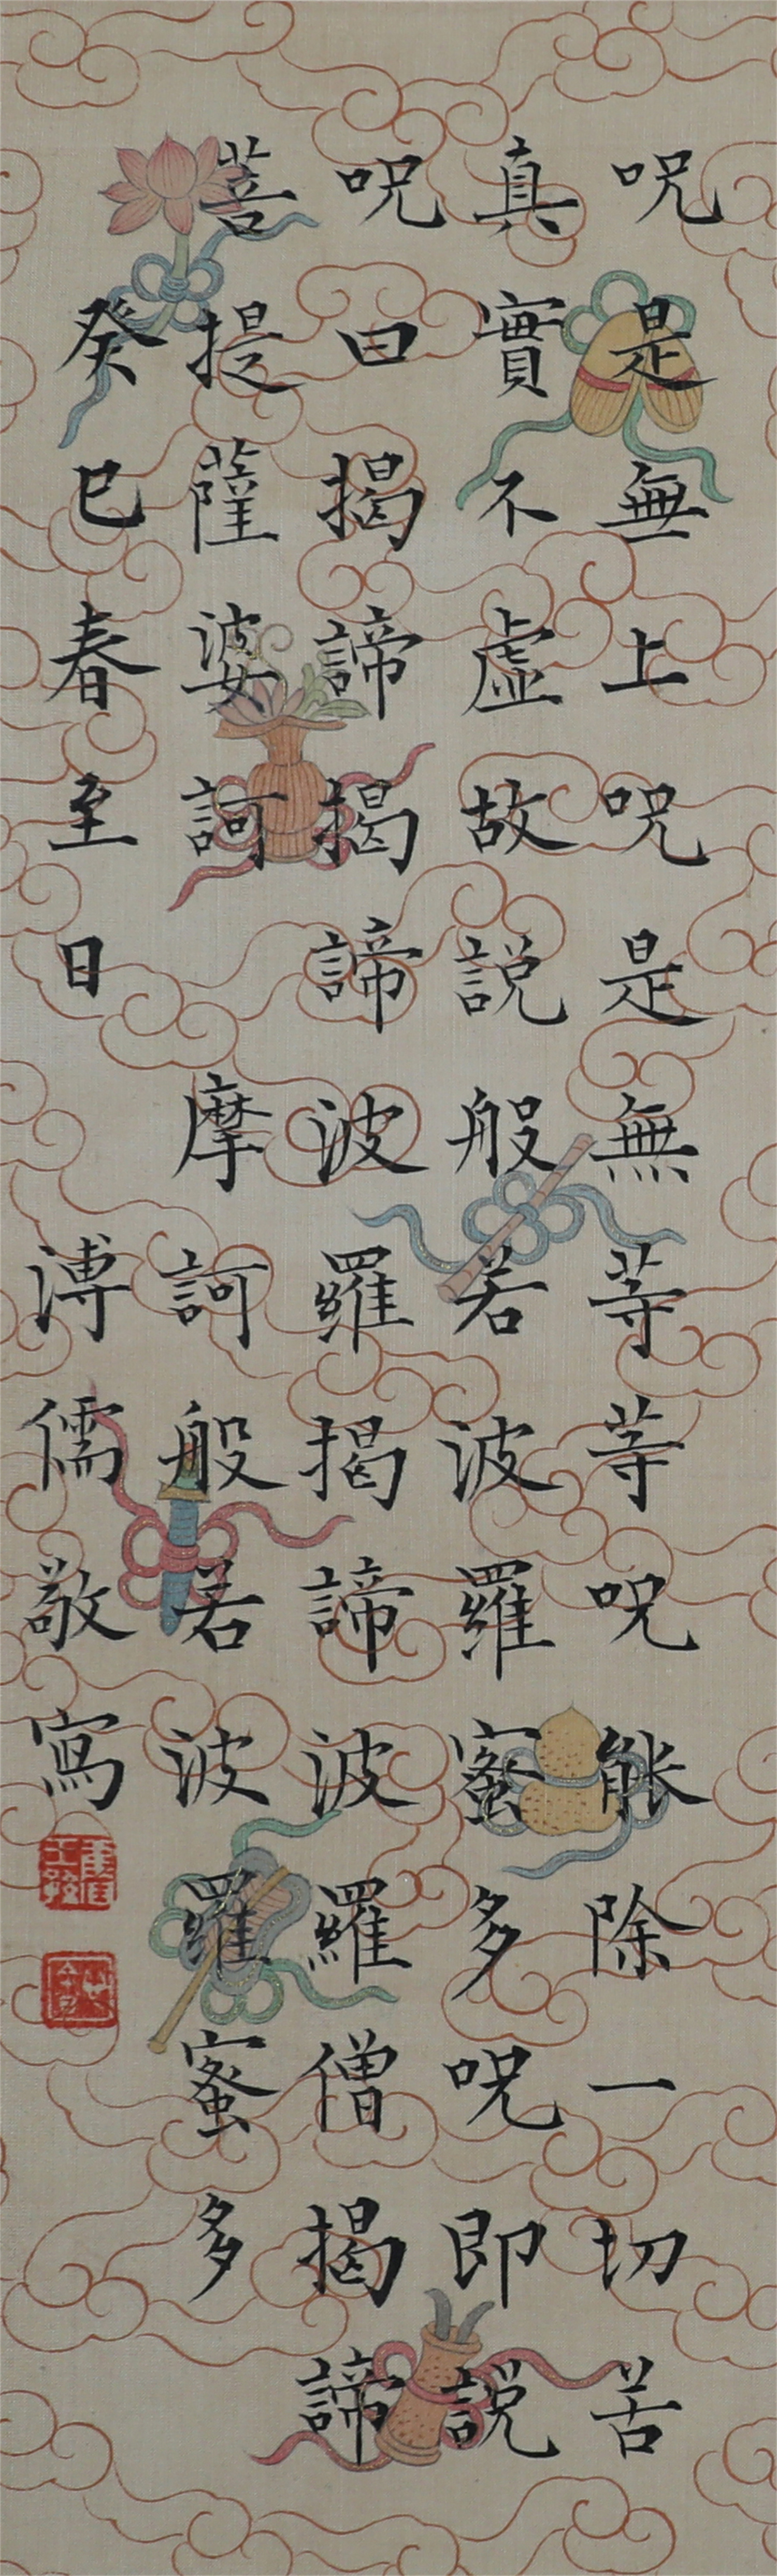 呪是無上呪是無等等呪能除一切苦
真實不虛故説般若波羅蜜多呪即説
呪曰揭諦揭諦波羅揭諦波羅僧揭諦
菩提薩婆訶 摩訶般若波羅蜜多
癸巳春至日 溥儒敬寫